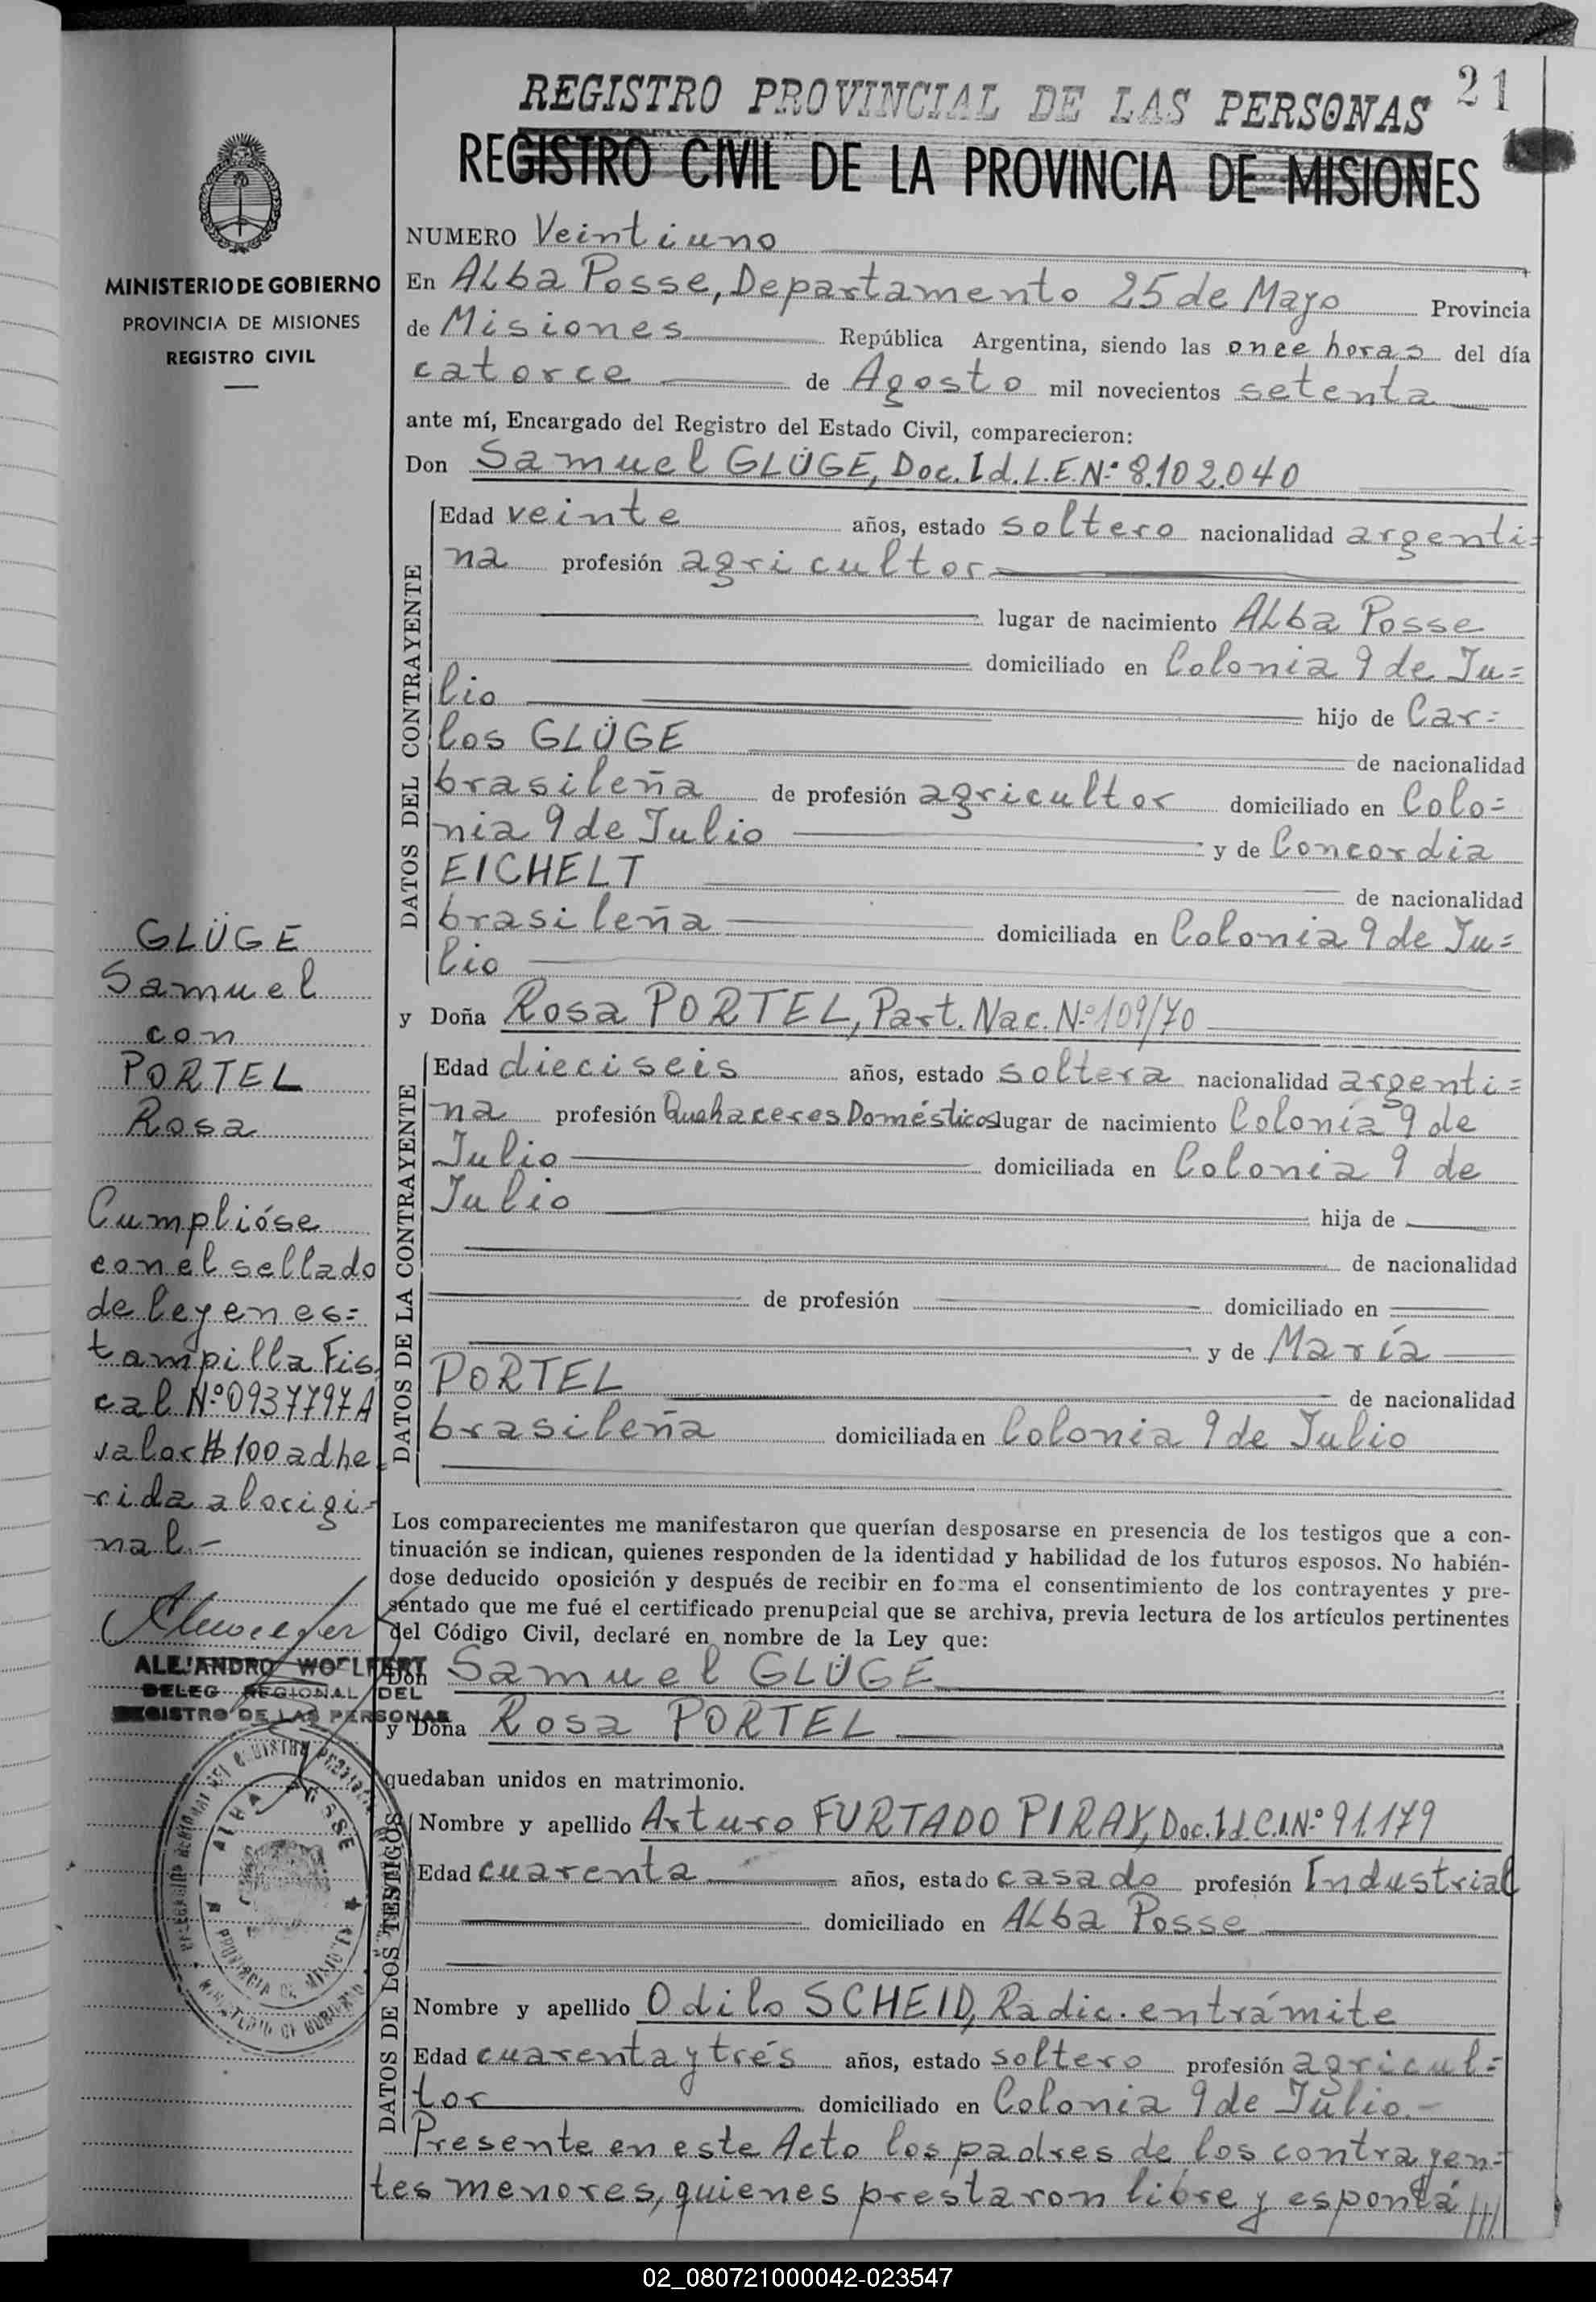 21
REGISTRO PROVINCIAL DE LAS PERSONAS
REGISTRO CIVIL DE LA PROVINCIA DE MISIONES
MINISTERIO DE GOBIERNO
PROVINCIA DE MISIONES
REGISTRO CIVIL
NUMERO Veintiuno
En Alba Posse, Departamento 25 de Mayo Provincia
de Misiones República Argentina, siendo las once horas del día
catorce de Agosto mil novecientos setenta
ante mí, Encargado del Registro del Estado Civil, comparecieron:
Don Samuel GLÜGE, Doc. Id. L.E. Nº 8.102.040
DATOS DEL CONTRAYENTE
Edad veinte años, estado soltero nacionalidad argenti=
na profesión agricultor
lugar de nacimiento Alba Posse
domiciliado en Colonia 9 de Ju=
lio hijo de Car=
los GLÜGE de nacionalidad
brasileña de profesión agricultor domiciliado en Colo=
nia 9 de Julio y de Concordia
EICHELT de nacionalidad
brasileña domiciliada en Colonia 9 de Ju=
lio
y Doña Rosa PORTEL, Part. Nac. Nº 109/70
DATOS DE LA CONTRAYENTE
Edad dieciseis años, estado soltera nacionalidad argenti=
na profesión Quehaceres Domésticos lugar de nacimiento Colonia 9 de
Julio domiciliada en Colonia 9 de
Julio hija de
de nacionalidad
de profesión domiciliado en
y de María
PORTEL de nacionalidad
brasileña domiciliada en Colonia 9 de Julio
Los comparecientes me manifestaron que querían desposarse en presencia de los testigos que a con-
tinuación se indican, quienes responden de la identidad y habilidad de los futuros esposos. No habién-
dose deducido oposición y después de recibir en forma el consentimiento de los contrayentes y pre-
sentado que me fué el certificado prenupcial que se archiva, previa lectura de los artículos pertinentes
del Código Civil, declaré en nombre de la Ley que:
Don Samuel GLÜGE
y Doña Rosa PORTEL
quedaban unidos en matrimonio.
DATOS DE LOS TESTIGOS
Nombre y apellido Arturo FURTADO PIRAY, Doc. Id. C.I. Nº 91.179
Edad cuarenta años, estado casado profesión Industrial
domiciliado en Alba Posse
Nombre y apellido Odilo SCHEID, Radic. en trámite
Edad cuarenta y trés años, estado soltero profesión agricul=
tor domiciliado en Colonia 9 de Julio.-
Presente en este Acto los padres de los contrayen=
tes menores, quienes prestaron libre y espontá///
GLÜGE
Samuel
con
PORTEL
Rosa
Cumplióse
con el sellado
de ley en es=
tampilla Fis
cal Nº 0937797A
valor $ 100 adhe=
rida al origi=
nal.-
ALEJANDRO WOLFFERT
DELEG. REGIONAL DEL
REGISTRO DE LAS PERSONAS
ALBA POSSE
PROVINCIA DE MISIONES
MINISTERIO DE GOBIERNO
02_080721000042-023547